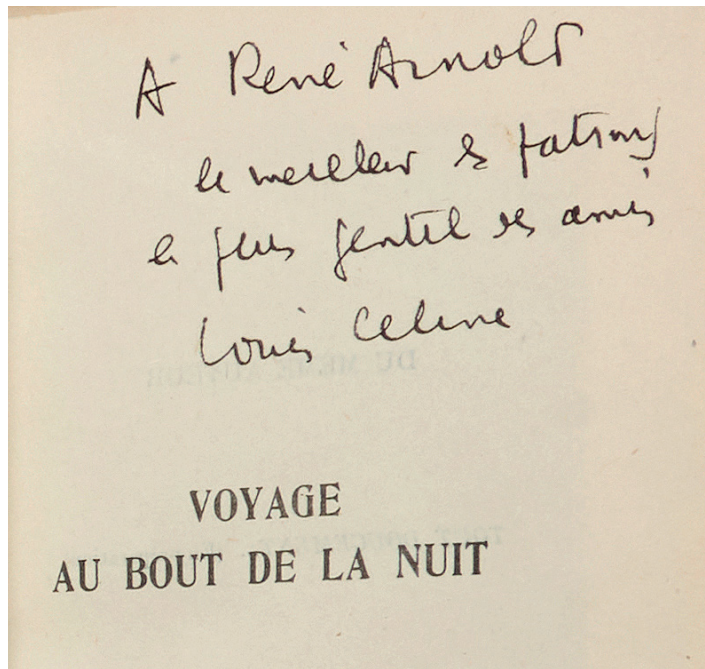 A René Arnold
le meilleur des patrons
le plus gentil des amis
Louis Celine
DU MEME AUTEUR
VOYAGE
AU BOUT DE LA NUIT